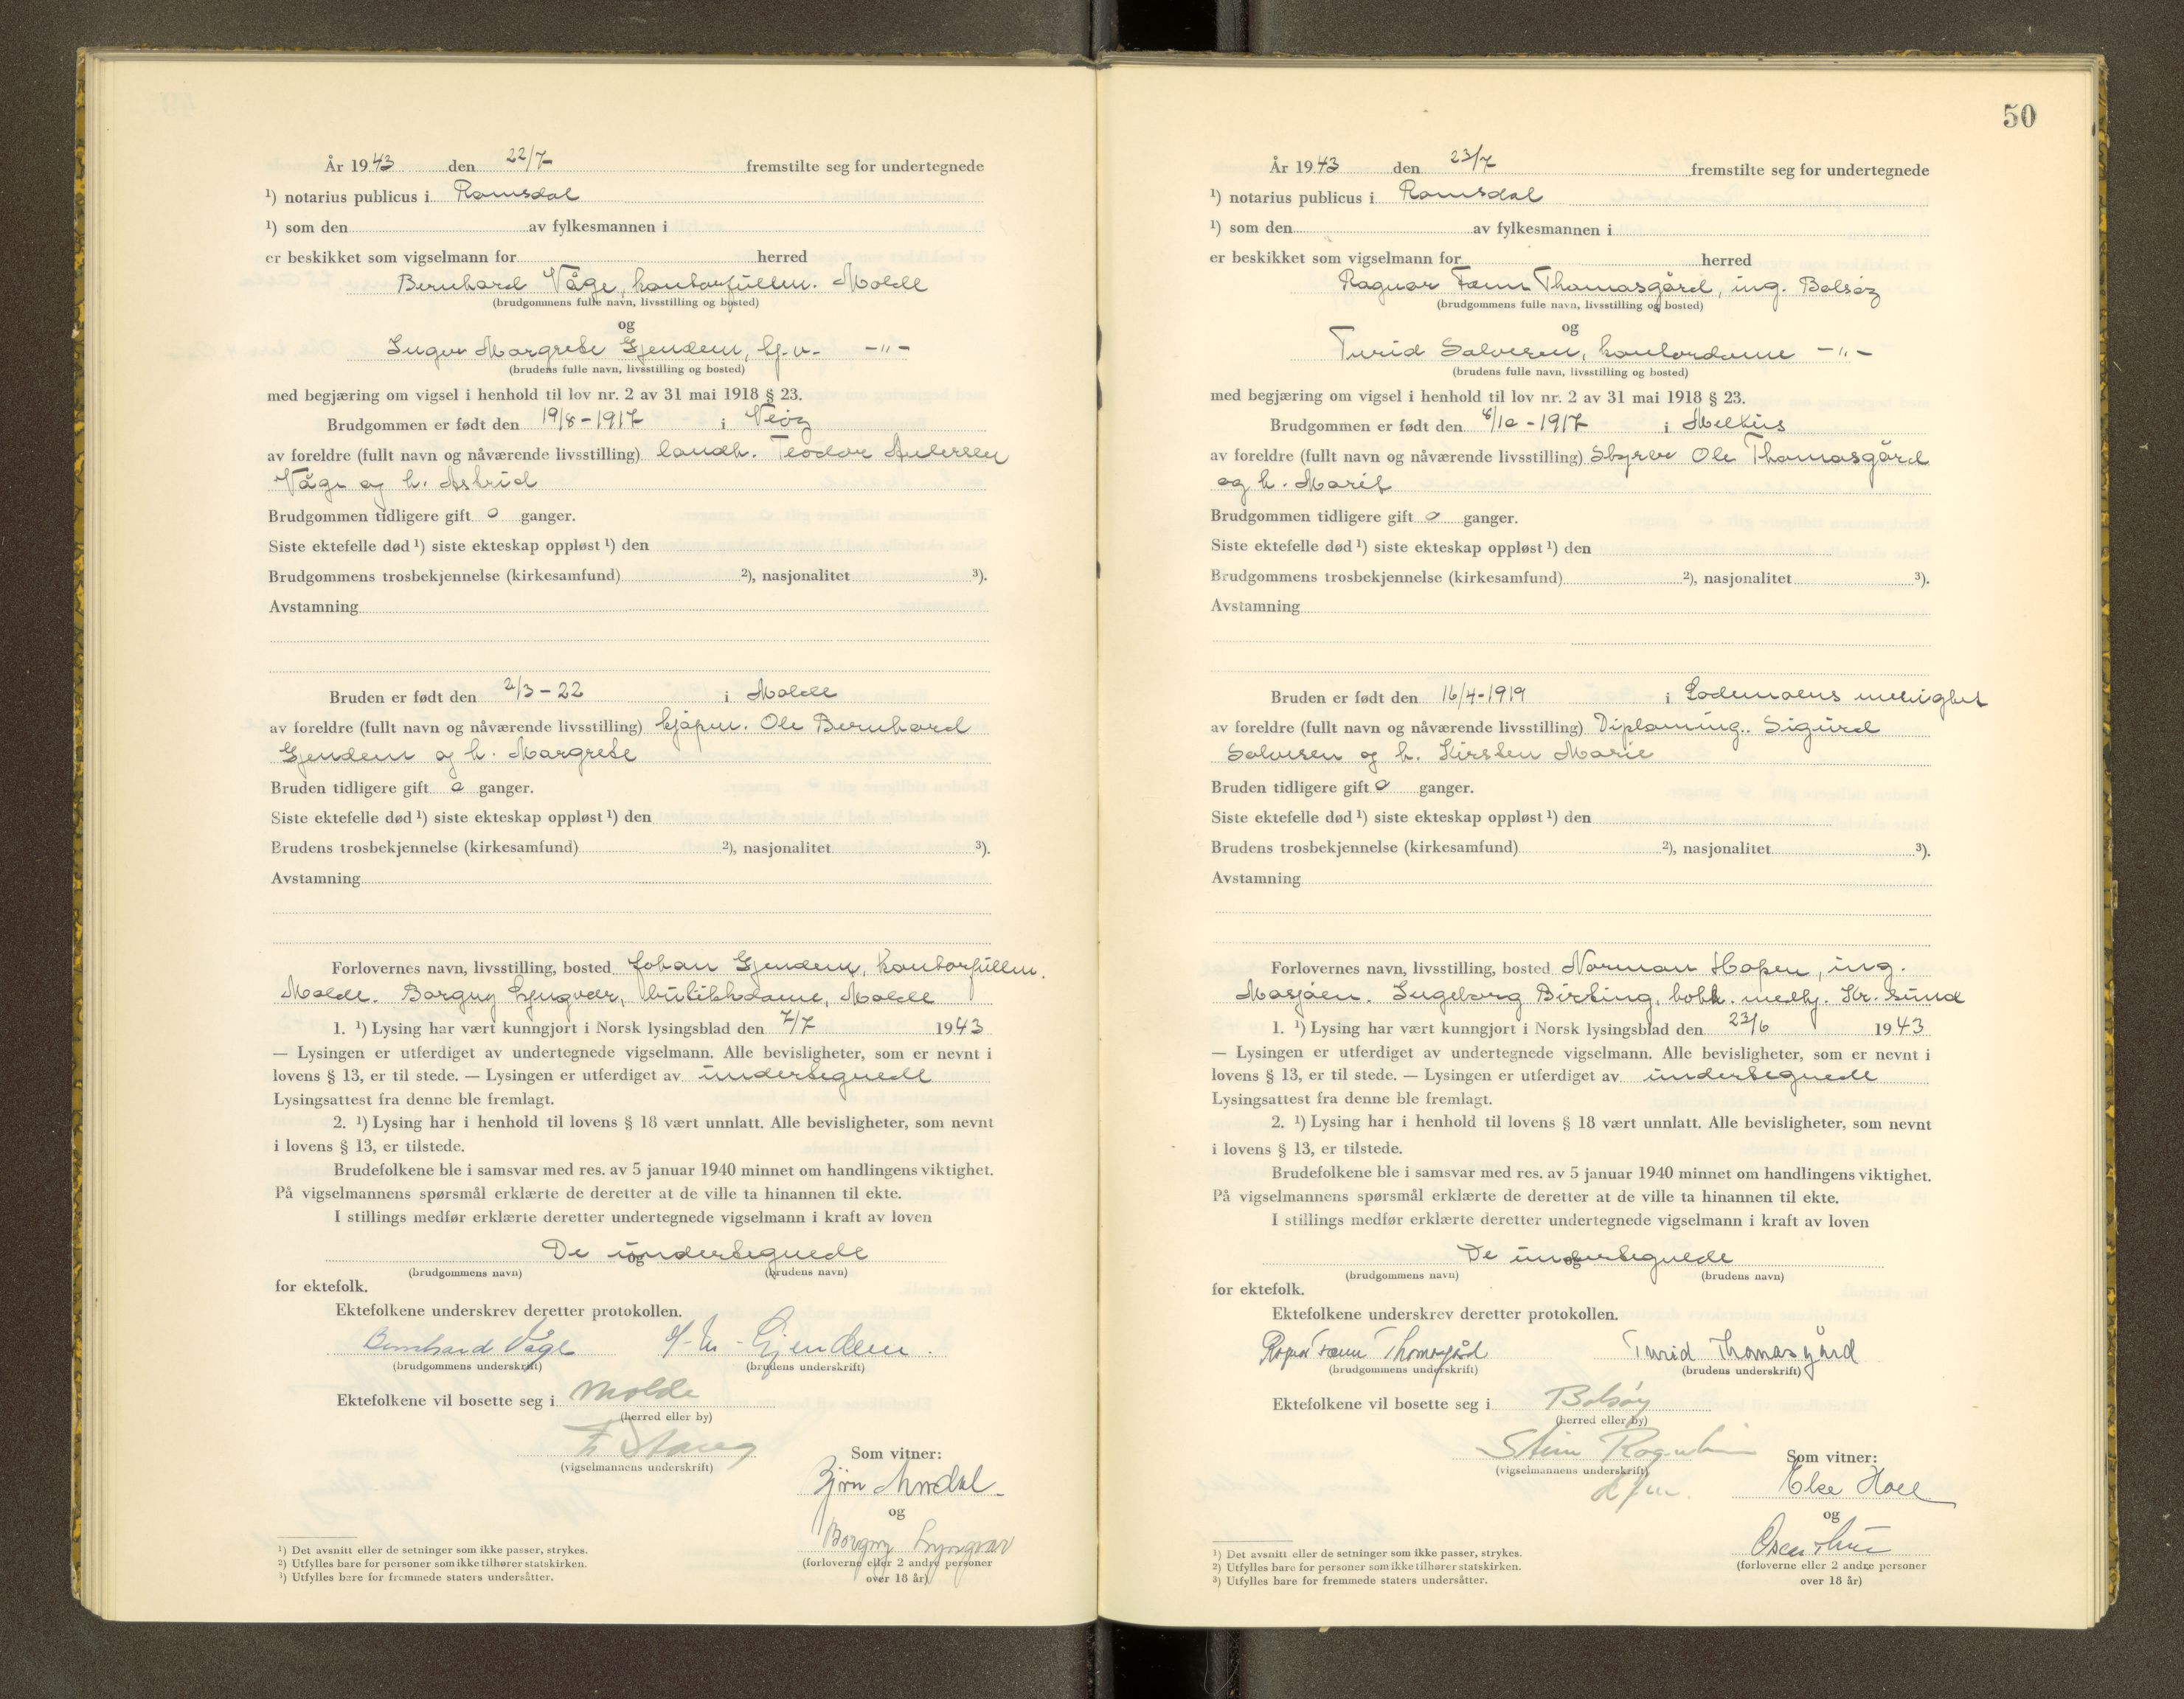 År 1943 den 22/7 fremstilte seg for undertegnede
¹) notarius publicus i Romsdal
¹) som den av fylkesmannen i
er beskikket som vigselmann for herred
Bernhard Våge, kontorfullm. Molde
(brudgommens fulle navn, livsstilling og bosted)
og
Inger Margrete Gjendem, hj.v. -"-
(brudens fulle navn, livsstilling og bosted)
med begjæring om vigsel i henhold til lov nr. 2 av 31 mai 1918 § 23.
Brudgommen er født den 19/8-1917 i Veøy
av foreldre (fullt navn og nåværende livsstilling) landh. Teodor Andersen
Våge og h. Astrid
Brudgommen tidligere gift 0 ganger.
Siste ektefelle død ¹) siste ekteskap oppløst ¹) den
Brudgommens trosbekjennelse (kirkesamfund) ²), nasjonalitet ³).
Avstamning
Bruden er født den 2/3-22 i Molde
av foreldre (fullt navn og nåværende livsstilling) kjøpm. Ole Bernhard
Gjendem og h. Margrete
Bruden tidligere gift 0 ganger.
Siste ektefelle død ¹) siste ekteskap oppløst ¹) den
Brudens trosbekjennelse (kirkesamfund) ²), nasjonalitet ³).
Avstamning
Forlovernes navn, livsstilling, bosted Johan Gjendem, kontorfullm.
Molde. Borgny Lyngvær, butikkdame, Molde
1. ¹) Lysing har vært kunngjort i Norsk lysingsblad den 7/7 1943
— Lysingen er utferdiget av undertegnede vigselmann. Alle bevisligheter, som er nevnt i
lovens § 13, er til stede. — Lysingen er utferdiget av undertegnede
Lysingsattest fra denne ble fremlagt.
2. ¹) Lysing har i henhold til lovens § 18 vært unnlatt. Alle bevisligheter, som nevnt
i lovens § 13, er tilstede.
Brudefolkene ble i samsvar med res. av 5 januar 1940 minnet om handlingens viktighet.
På vigselmannens spørsmål erklærte de deretter at de ville ta hinannen til ekte.
I stillings medfør erklærte deretter undertegnede vigselmann i kraft av loven
De undertegnede
og
(brudgommens navn) (brudens navn)
for ektefolk.
Ektefolkene underskrev deretter protokollen.
Bernhard Våge Gjendem.
(brudgommens underskrift) (brudens underskrift)
Ektefolkene vil bosette seg i Molde
(herred eller by)
(vigselmannens underskrift)
Som vitner:
Bjørn
og
Borgny Lyngvær
(forloverne eller 2 andre personer
over 18 år)
¹) Det avsnitt eller de setninger som ikke passer, strykes.
²) Utfylles bare for personer som ikke tilhører statskirken.
³) Utfylles bare for fremmede staters undersåtter.
50
År 1943 den 23/7 fremstilte seg for undertegnede
¹) notarius publicus i Romsdal
¹) som den av fylkesmannen i
er beskikket som vigselmann for herred
Ragnar Thomasgård, ing. Bolsøy
(brudgommens fulle navn, livsstilling og bosted)
og
Turid Salvesen, kontordame -"-
(brudens fulle navn, livsstilling og bosted)
med begjæring om vigsel i henhold til lov nr. 2 av 31 mai 1918 § 23.
Brudgommen er født den 8/10-1917 i Melhus
av foreldre (fullt navn og nåværende livsstilling) Styrer Ole Thomasgård
og h. Marit
Brudgommen tidligere gift 0 ganger.
Siste ektefelle død ¹) siste ekteskap oppløst ¹) den
Brudgommens trosbekjennelse (kirkesamfund) ²), nasjonalitet ³).
Avstamning
Bruden er født den 16/4-1919 i Lademoens menighet
av foreldre (fullt navn og nåværende livsstilling) Diploming. Sigurd
Salvesen og h. Kirsten Marie
Bruden tidligere gift 0 ganger.
Siste ektefelle død ¹) siste ekteskap oppløst ¹) den
Brudens trosbekjennelse (kirkesamfund) ²), nasjonalitet ³).
Avstamning
Forlovernes navn, livsstilling, bosted Norman Hopen, ing.
Mosjøen. Ingeborg Birting, bokh. medhj. Kr. sund
1. ¹) Lysing har vært kunngjort i Norsk lysingsblad den 23/6 1943
— Lysingen er utferdiget av undertegnede vigselmann. Alle bevisligheter, som er nevnt i
lovens § 13, er til stede. — Lysingen er utferdiget av undertegnede
Lysingsattest fra denne ble fremlagt.
2. ¹) Lysing har i henhold til lovens § 18 vært unnlatt. Alle bevisligheter, som nevnt
i lovens § 13, er tilstede.
Brudefolkene ble i samsvar med res. av 5 januar 1940 minnet om handlingens viktighet.
På vigselmannens spørsmål erklærte de deretter at de ville ta hinannen til ekte.
I stillings medfør erklærte deretter undertegnede vigselmann i kraft av loven
De undertegnede
og
(brudgommens navn) (brudens navn)
for ektefolk.
Ektefolkene underskrev deretter protokollen.
Ragnar Thomasgård Turid Thomasgård
(brudgommens underskrift) (brudens underskrift)
Ektefolkene vil bosette seg i Bolsøy
(herred eller by)
(vigselmannens underskrift)
Som vitner:
Else
og
(forloverne eller 2 andre personer
over 18 år)
¹) Det avsnitt eller de setninger som ikke passer, strykes.
²) Utfylles bare for personer som ikke tilhører statskirken.
³) Utfylles bare for fremmede staters undersåtter.